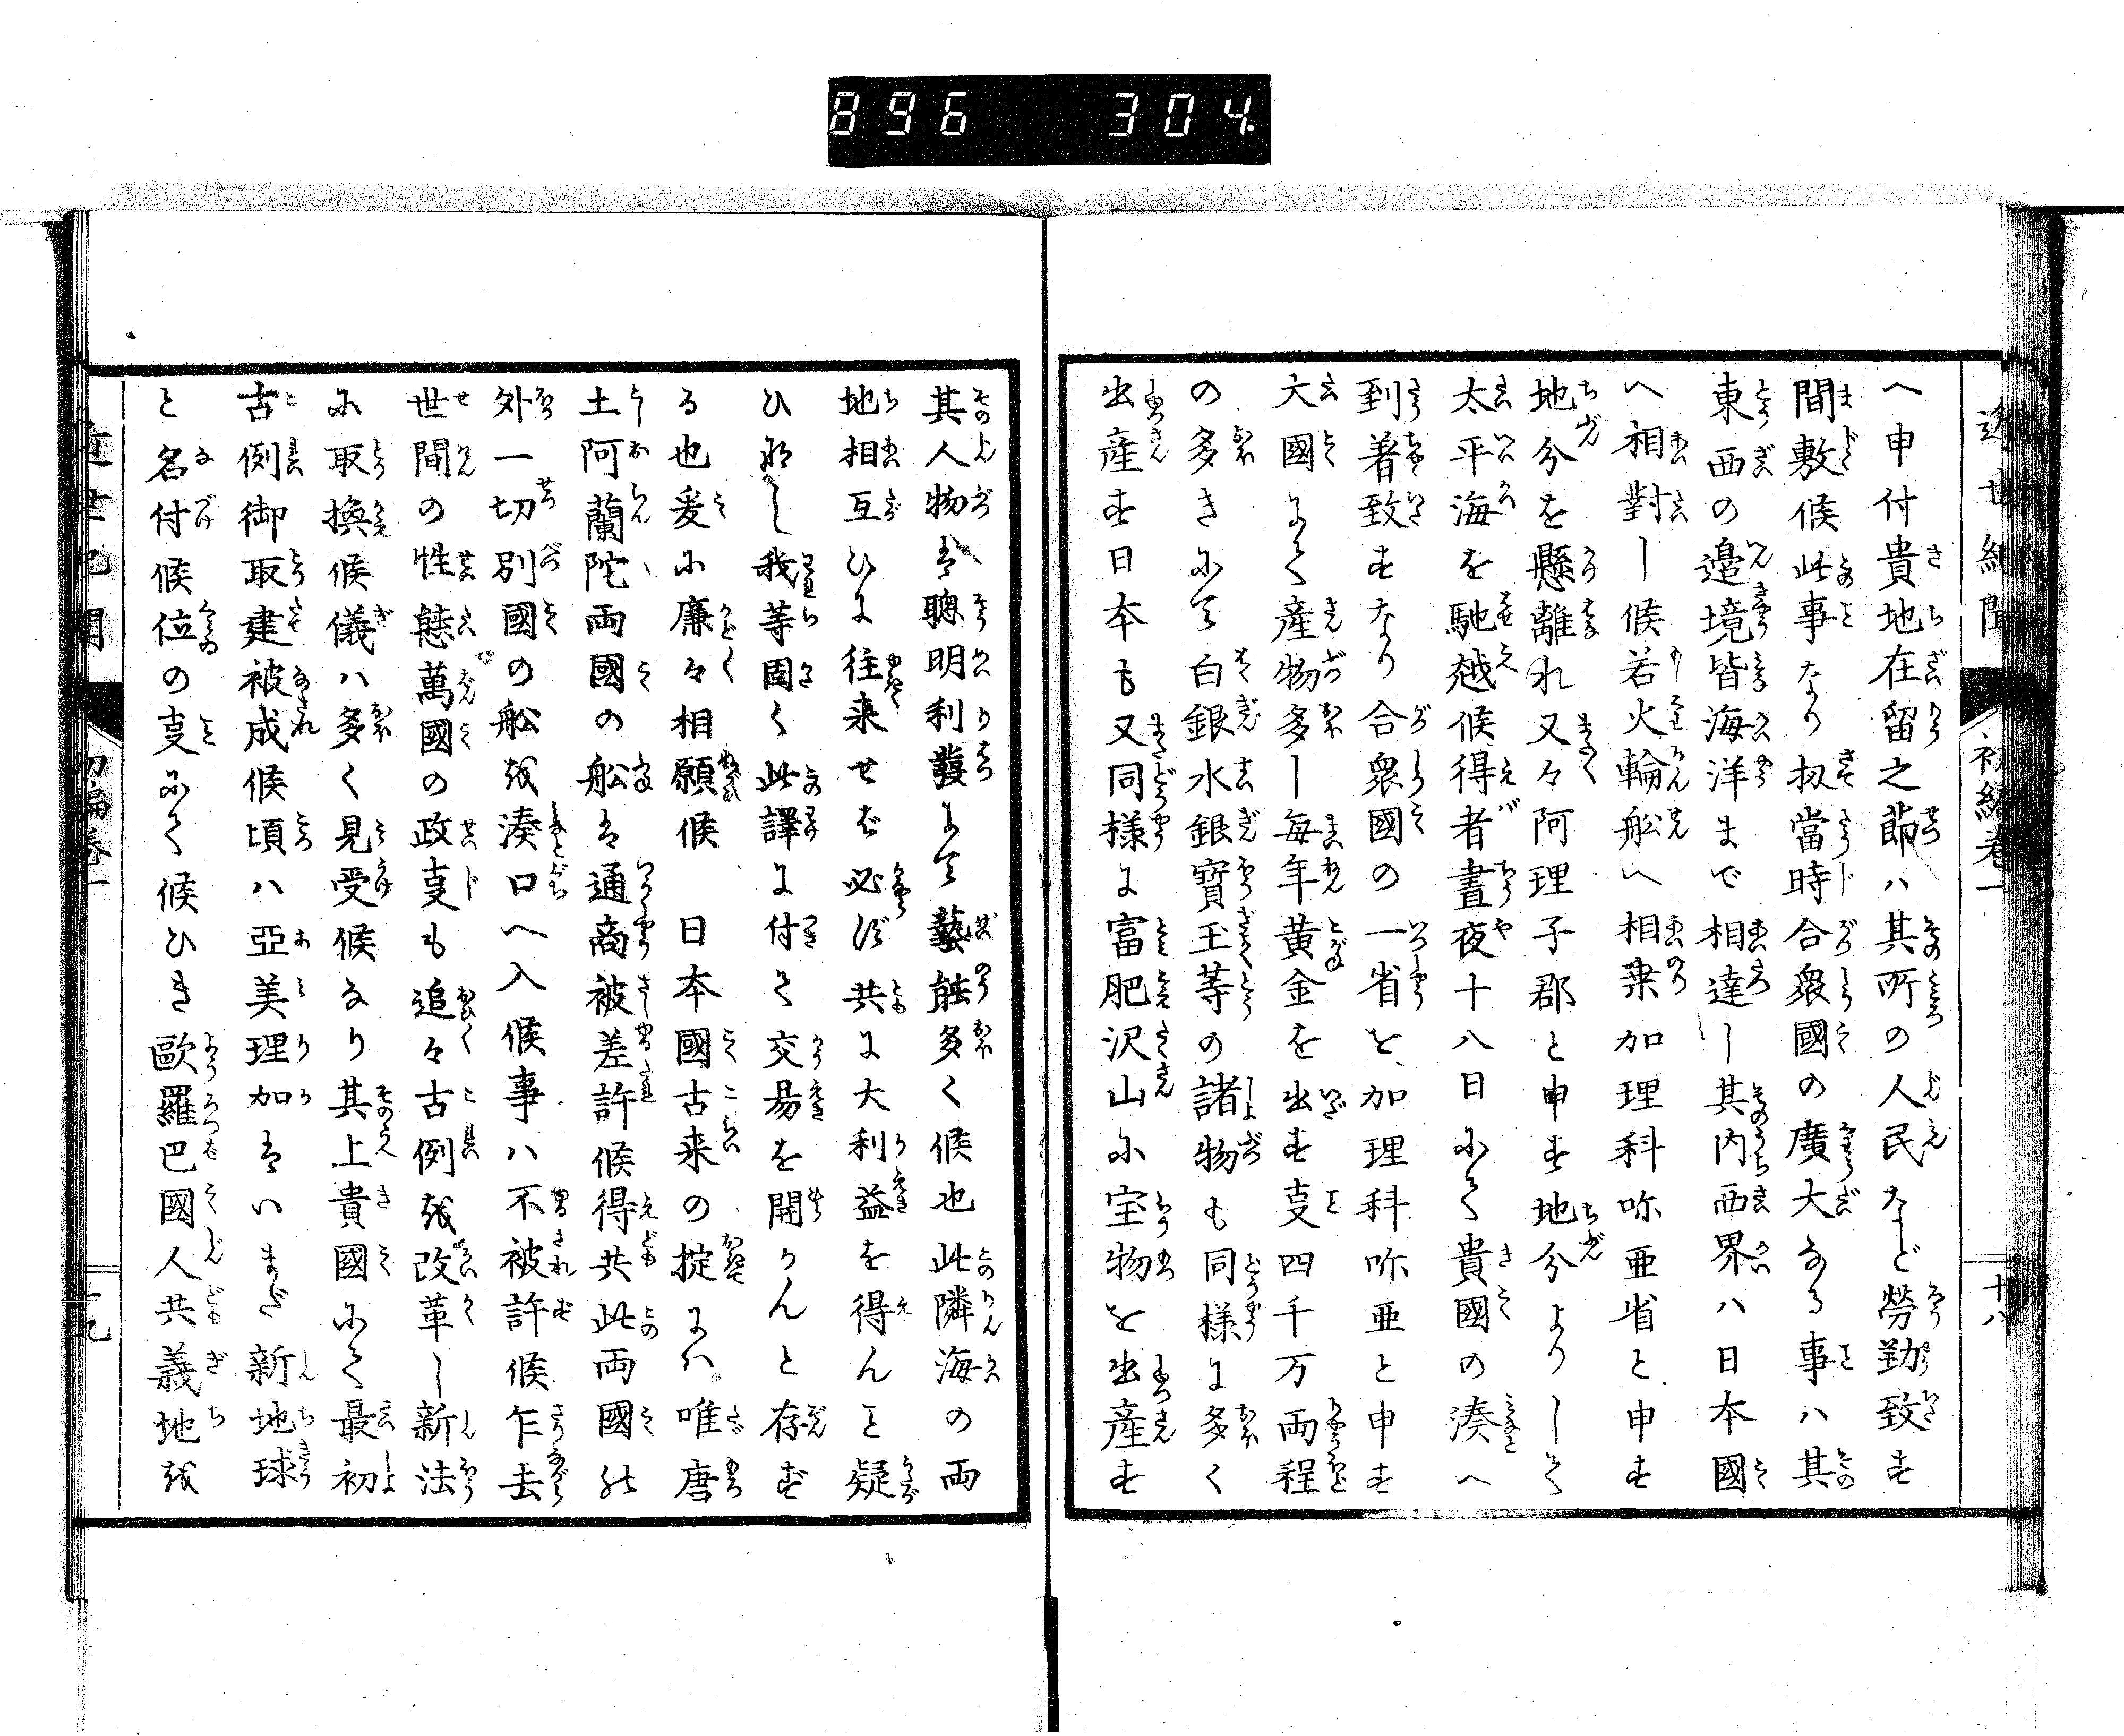 896 304
近世紀聞 初編巻一 十八
へ申付貴地在留之節ハ其所の人民など勞勤致す
間敷候此事なり扨當時合衆國の廣大なる事ハ其
東西の邉境皆海洋まで相達し其内西界ハ日本國
へ相對し候若火輪舩へ相乗加理科呩亜省と申す
地分を懸離れ又々阿理子郡と申す地分よりして
太平海を馳越候得者晝夜十八日にて貴國の湊へ
到着致すなり合衆國の一省を加理科呩亜と申す
大國にて産物多し毎年黄金を出す亊四千万両程
の多きにて白銀水銀寳玉等の諸物も同様に多く
出産す日本も又同様に富肥沢山に宝物を出産す
其人物は聰明利發にて藝能多く候也此隣海の両
地相互ひに往来せば必ず共に大利益を得んと疑
ひなし我等固く此譯に付て交易を開かんと存ず
る也爰に廉々相願候 日本國古来の掟にハ唯唐
土阿蘭陀両國の舩は通商被差許候得共此両國の
外一切別國の舩を湊口へ入候事ハ不被許候乍去
世間の性態萬國の政亊も追々古例を改革し新法
に取換候儀ハ多く見受候なり其上貴國にて最初
古例御取建被成候頃ハ亞美理加はいまだ新地球
と名付候位の亊にて候ひき歐羅巴國人共義地を
近世紀聞 初編巻一 十九